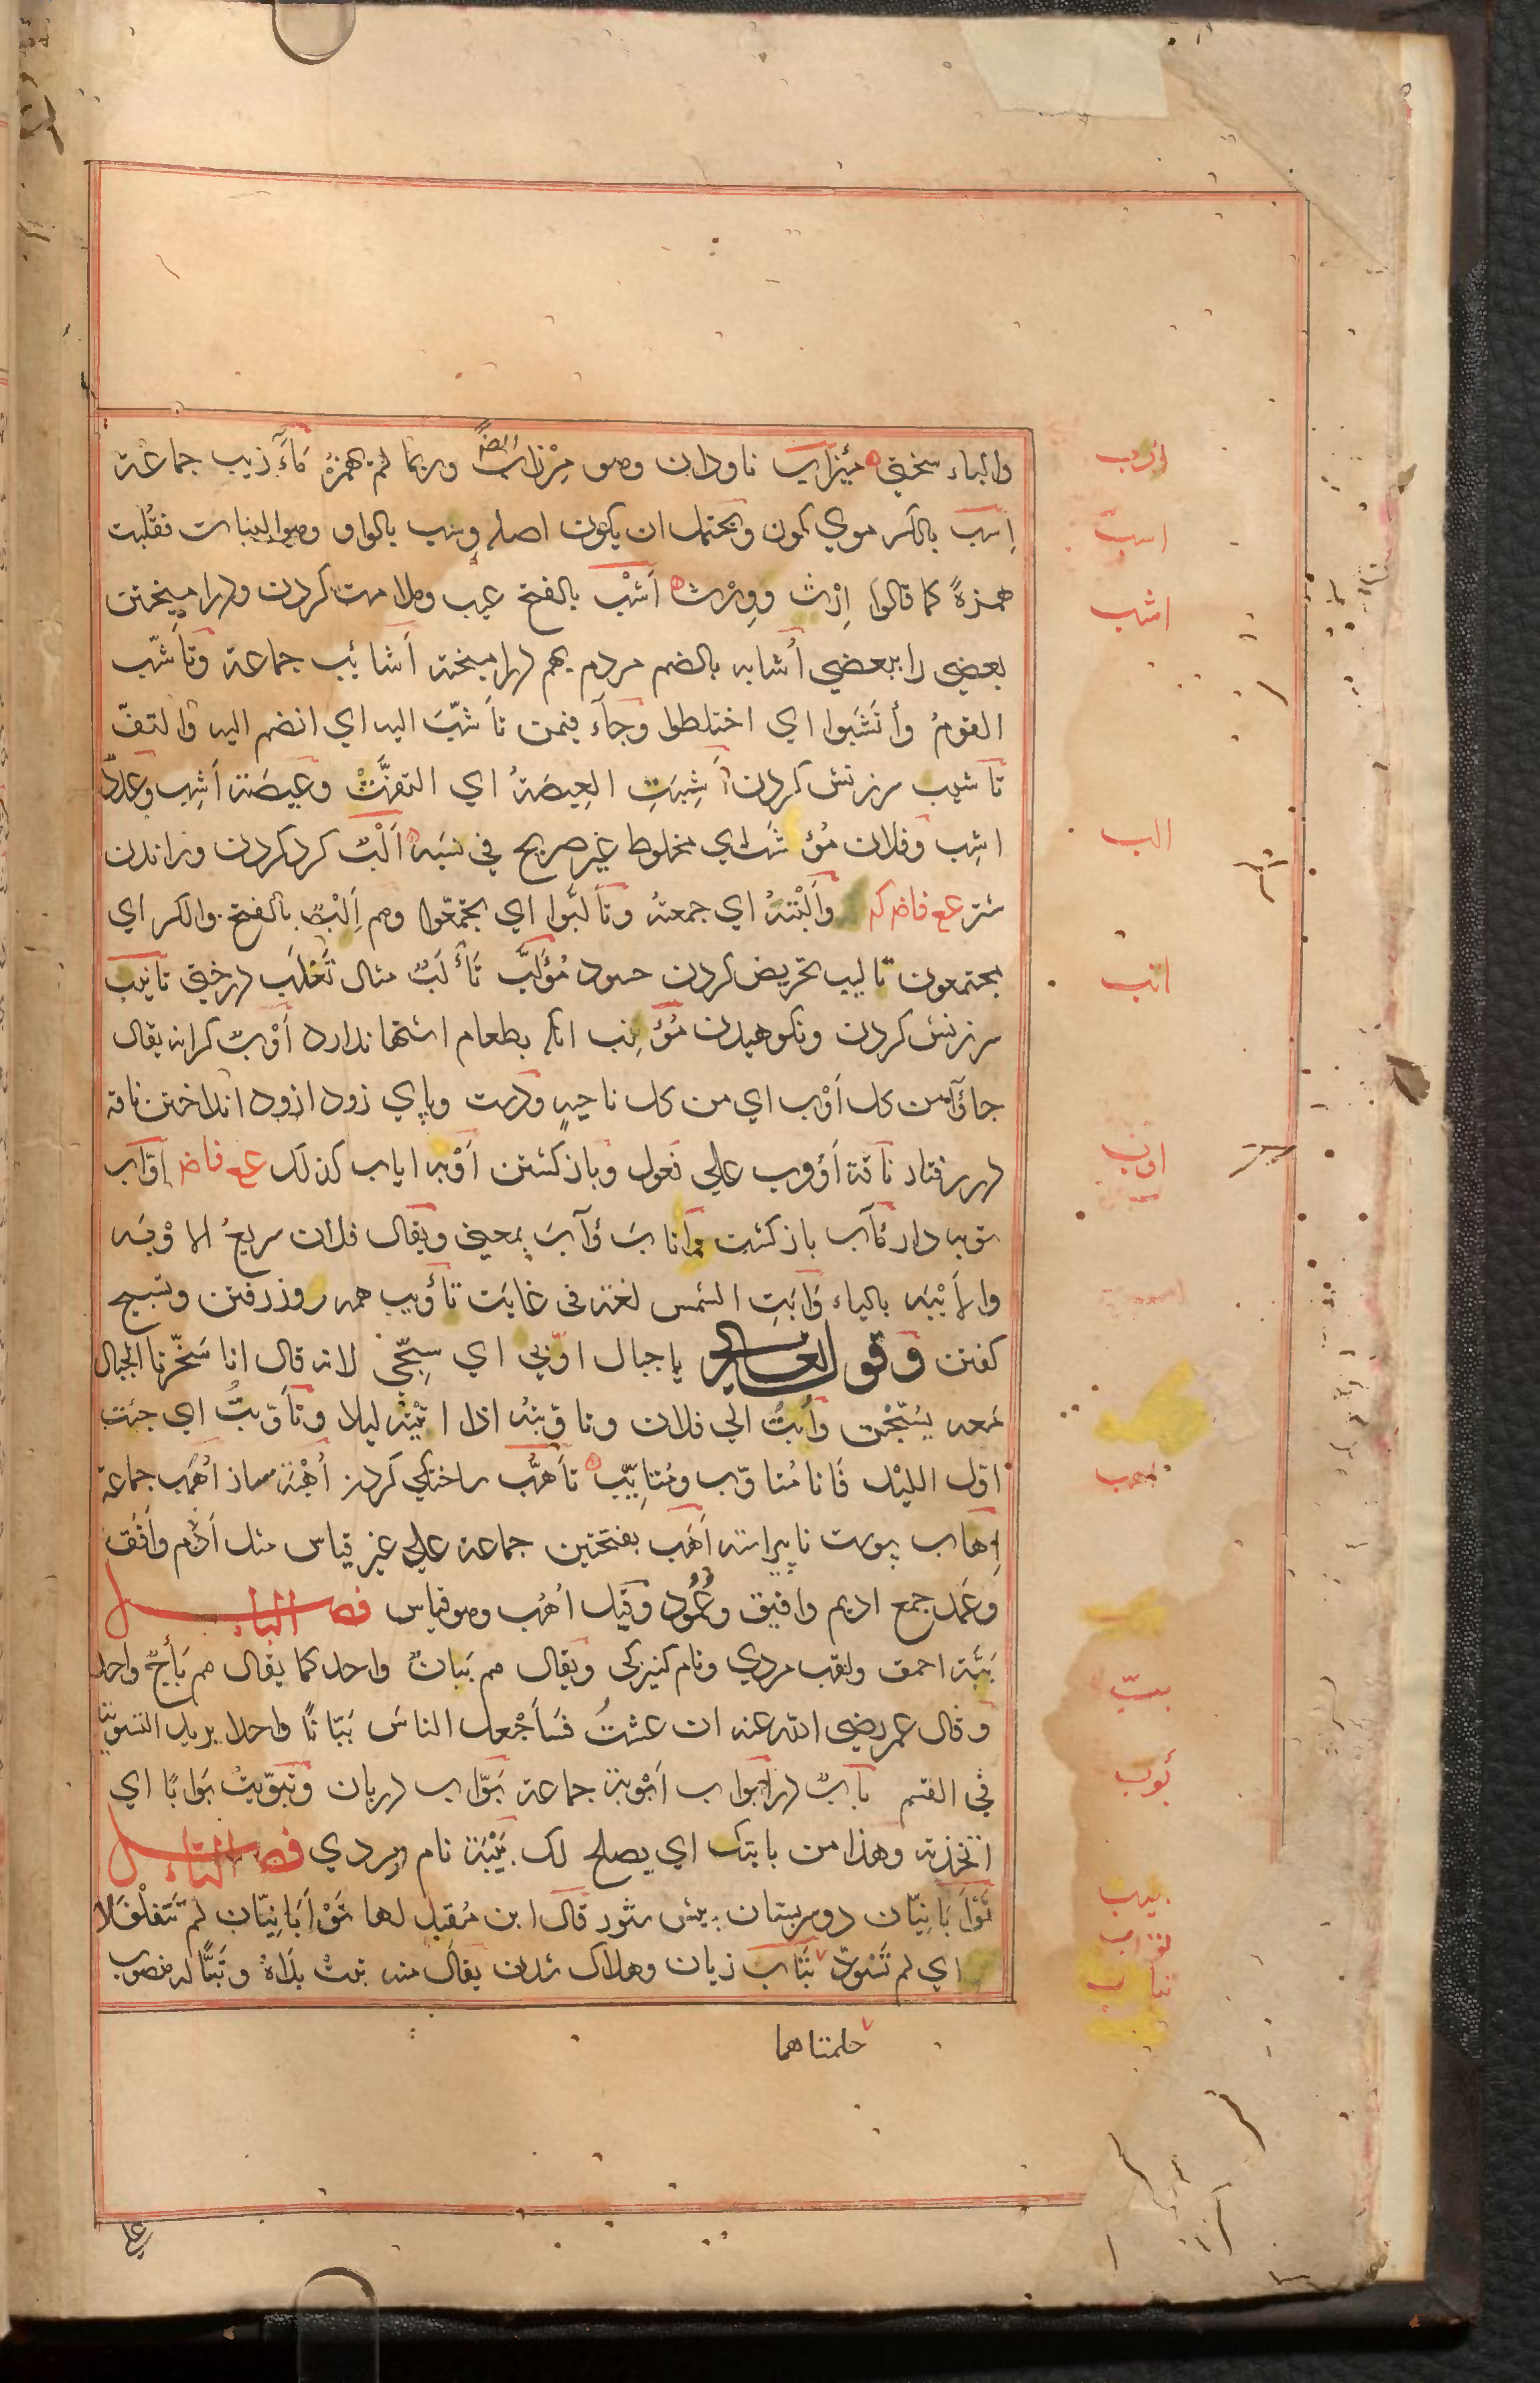 والباء سختي مئزاب ناودان وهو مِرْزاب ايضً وربما لم يهمز مَآزيب جماعة
اِسْب بالكسر موي كون ويحتمل ان يكون اصله وِسب بالواو وهو النبات فقُلبت
همزةً كما قالوا اِرْث ووِرْث اَشْب بالفتح عيب وملامت كردن ودراميختن
بعضي را ببعضي اُشابه بالضم مردم بهم دراميخته اَشائب جماعة وتأشّب
القومُ وأتَشَبوا اي اختلطوا وجآء فيمن تأشّبَ اليه اي انضم اليه والتفّ
تاشيب سرزنش كردن اَشِبَتِ الغيضةُ اي التفّتْ وغيضة اَشِب وعددٌ
اشِب وفلان مُؤتشَب اي مخلوط غير صريح في نسبه اَلْبٌ كرد كردن وراندن
شتر ع ع فاضركـ واَلَبْتهُ اي جمعته وتأَلّبوا اي تجمّعوا وهم اِلْبٌ بالفتح والكسر اي
مجتمعون تاليب تحريض كردن حسود مُؤَلَّب تَأْلَبٌ مثال ثَعْلَب درختي تانيب
سرزنش كردن ونكوهيدن مُؤْتنِب انكه بطعام اشتها ندارد اَوْبٌ كرانه يقال
جاؤا من كل اَوْب اي من كل ناحيةٍ ودست وپاي زود ازود انداختن ناقه
در رفتار ناقة اَؤوب علي فعول وبازكشتن اَوْبه اياب كذلك ع ع فاضـ اَوّاب
توبه دار مَآب بازكشت وانابَ وَآبَ بمعني ويقال فلان سريعُ الاَوْبه
والاَيْبَه بالياء وَابَتِ الشمس لغة في غابَت تأويب همه روز رفتن وتسبيح
كفتن وقوله تعالي يا جبال اوّبي اي سبّحي لانه قال انا سَخّرنا الجبال
معه يسبّحن واُبتُ الي فلان وتاوّبتهُ اذا اتيته ليلا وتأَوّبتُ اي جئت
اوّل الليل فَانا مُتاوّب ومُتايّب تأهُّب ساختكي كردن اُهْبَة ساز اُهَب جماعة
اِهاب پوست ناپيراسته اَهَب بفتحتين جماعة علي غير قياس مثل اَدَم واَفَق
وعَمَد جمع اديم وافيق وعَمُود وقيل اُهُب وهو قياس فصل الباء
بَبَّة احمق ولقب مردي ونام كنيزكي ويقال هم بَبانٌ واحد كما يقال هم بَأْجٌ واحد
وقال عمر رضي الله عنه ان عشتُ فسَاَجْعل الناسَ بَبّانًا واحدا يريد التسوية
في القسم بابٌ در ابواب اَبْوبة جماعة بَوّاب دربان وتبوّبتُ بَوابًا اي
اتخذته وهذا من بابتك اي يصلح لك بَيْبَة نام مردي فصل التاء
تَوْأَبَانِيّان دو سرپستان پيش شتر قال ابن مُقبل لها تَوْأَبَانِيّان لم تتَفلْفَلا
اي لم تَسْوَدّ تَبَاب زيان وهلاك شدن يقال منه تبتْ يَداهُ وتَبًّا له منصوب
حلمتاهما
ازب
اسب
اشب
الب
انب
اوب
اهب
ببب
بوب
بيب
توأب
تباب